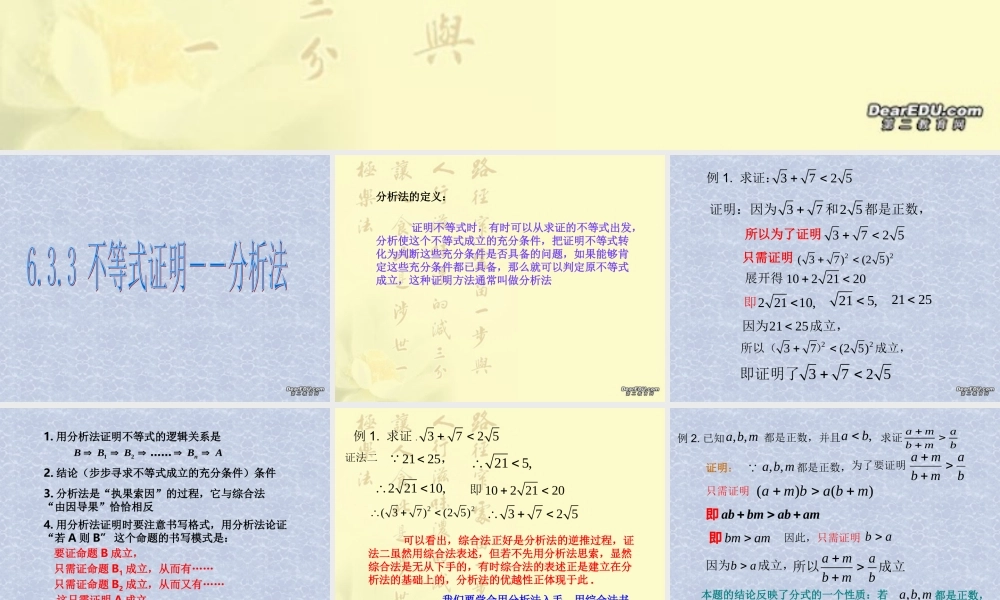 一 三 分 與
DearEDU.com
第二教育网
6.3.3 不等式证明－－分析法
DearEDU.com
第二教育网
分析法的定义：
证明不等式时，有时可以从求证的不等式出发，
分析使这个不等式成立的充分条件，把证明不等式转
化为判断这些充分条件是否具备的问题，如果能够肯
定这些充分条件都已具备，那么就可以判定原不等式
成立，这种证明方法通常叫做分析法
DearEDU.com
第二教育网
例 1. 求证：√3 + √7 < 2√5
证明：因为 √3 + √7 和 2√5 都是正数，
所以为了证明 √3 + √7 < 2√5
只需证明 (√3 + √7)² < (2√5)²
展开得 10 + 2√21 < 20
即 2√21 < 10, √21 < 5, 21 < 25
因为 21 < 25 成立，
所以（√3 + √7）² < (2√5)² 成立，
即证明了 √3 + √7 < 2√5
DearEDU.com
第二教育网
1. 用分析法证明不等式的逻辑关系是
B ⇒ B₁ ⇒ B₂ ⇒ …… ⇒ Bₙ ⇒ A
2. 结论（步步寻求不等式成立的充分条件）条件
3. 分析法是“执果索因”的过程，它与综合法
“由因导果”恰恰相反
4. 用分析法证明时要注意书写格式，用分析法论证
“若 A 则 B” 这个命题的书写模式是：
要证命题 B 成立，
只需证命题 B₁ 成立，从而有……
只需证命题 B₂ 成立，从而又有……
这只需证明 A 成立
例 1. 求证 √3 + √7 < 2√5
证法二 ∵ 21 < 25, ∴ √21 < 5,
∴ 2√21 < 10, 即 10 + 2√21 < 20
∴ (√3 + √7)² < (2√5)² ∴ √3 + √7 < 2√5
可以看出，综合法正好是分析法的逆推过程，证
法二虽然用综合法表述，但若不先用分析法思索，显然
综合法是无从下手的，有时综合法的表述正是建立在分
析法的基础上的，分析法的优越性正体现于此 .
我们要学会用分析法入手，用综合法书
例 2. 已知 a, b, m 都是正数，并且 a < b, 求证 (a + m)/(b + m) > a/b
证明： ∵ a, b, m 都是正数，为了要证明 (a + m)/(b + m) > a/b
只需证明 (a + m)b > a(b + m)
即 ab + bm > ab + am
即 bm > am 因此，只需证明 b > a
因为 b > a 成立，所以 (a + m)/(b + m) > a/b 成立
本题的结论反映了分式的一个性质：若 a, b, m 都是正数，